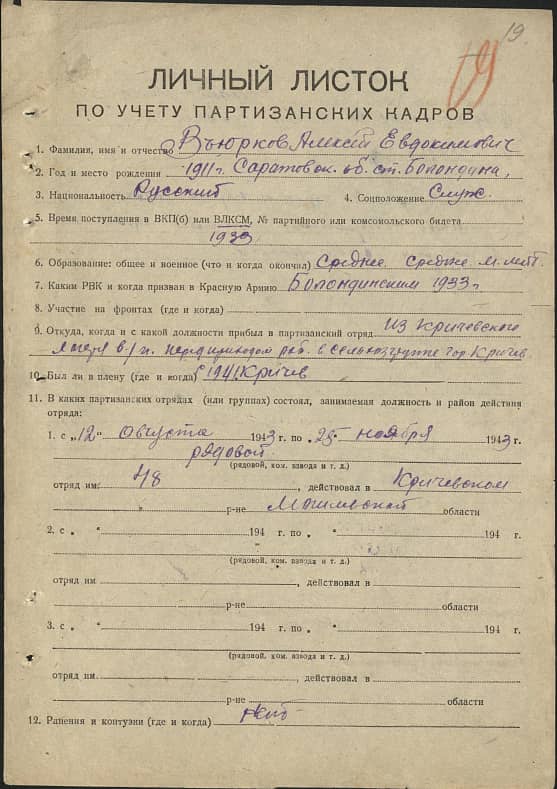 19.
19
ЛИЧНЫЙ ЛИСТОК
ПО УЧЕТУ ПАРТИЗАНСКИХ КАДРОВ
1. Фамилия, имя и отчество Вьюрков Алексей Евдокимович
2. Год и место рождения 1911 г. Саратовск. об. ст. Болондина,
3. Национальность Русский 4. Соцположение Служ.
5. Время поступления в ВКП(б) или ВЛКСМ, № партийного или комсомольского билета
1933
6. Образование: общее и военное (что и когда окончил) Средне
7. Каким РВК и когда призван в Красную Армию Болондинским 1933 г
8. Участие на фронтах (где и когда)
9. Откуда, когда и с какой должности прибыл в партизанский отряд. Из Кричевского
лагеря в/п. перед приходом раб. в гор. Кричев.
10. Был ли в плену (где и когда) 1941. Кричев
11. В каких партизанских отрядах (или группах) состоял, занимаемая должность и район действия
отряда:
1. с „12" Августа 1943 г. по „25" ноября 1943 г.
рядовой
(рядовой, ком. взвода и т. д.)
отряд им. 48, действовал в Кричевском
р-не Могилевской области
2. с „ " 194 г. по „ " 194 г.
(рядовой, ком. взвода и т. д.)
отряд им , действовал в
р-не области
3. с „ " 194 г. по „ " 194 г.
(рядовой, ком. взвода и т. д.)
отряд им. , действовал в
р-не области
12. Ранения и контузии (где и когда) нет